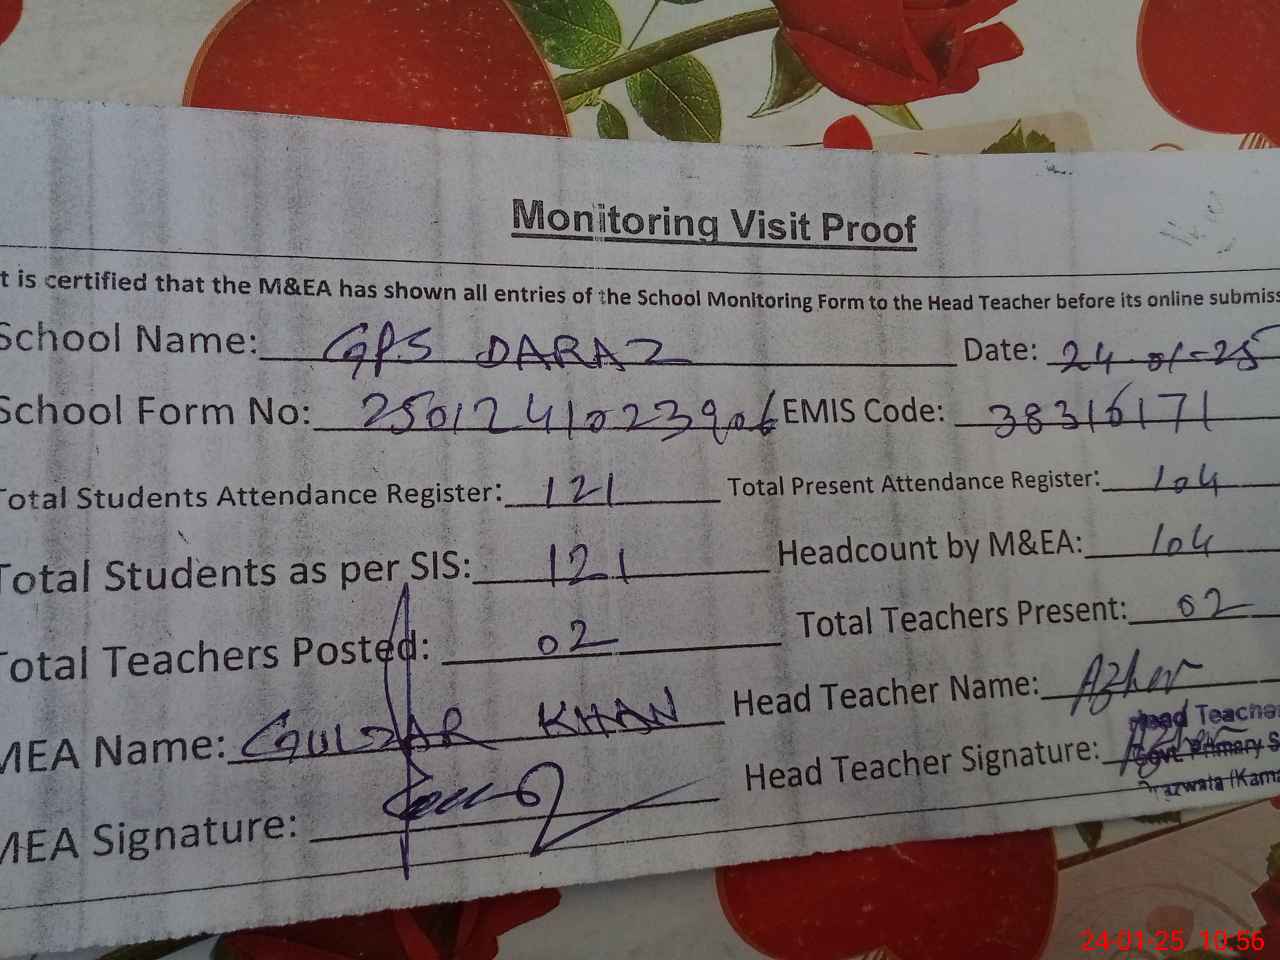 Monitoring Visit Proof
t is certified that the M&EA has shown all entries of the School Monitoring Form to the Head Teacher before its online submiss
School Name: GPS DARAZ Date: 24-01-25
School Form No: 2501241023906 EMIS Code: 38316171
Total Students Attendance Register: 121 Total Present Attendance Register: 104
Total Students as per SIS: 121 Headcount by M&EA: 104
Total Teachers Posted: 02 Total Teachers Present: 02
MEA Name: GULZAR KHAN Head Teacher Name: Azhar
MEA Signature: Head Teacher Signature:
Head Teache
Govt Primary S
azwata (Kama
24-01-25 10:56